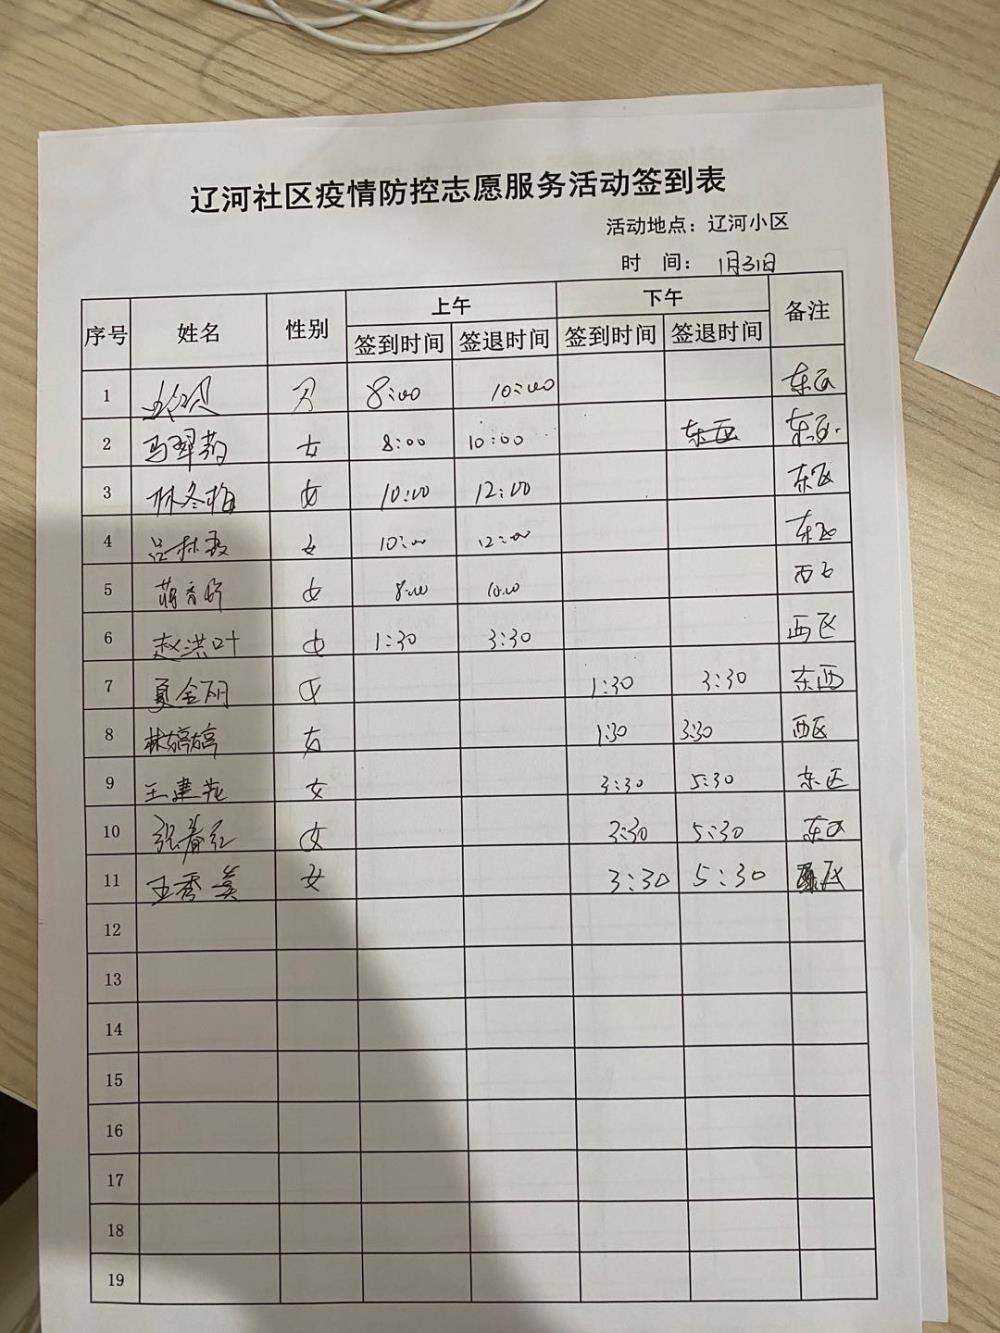 辽河社区疫情防控志愿服务活动签到表
活动地点：辽河小区
时 间： 1月31日
序号 姓名 性别 上午 下午 备注
签到时间 签退时间 签到时间 签退时间
1 男 8:00 10:00 东区
2 马翠菊 女 8:00 10:00 东区 东区.
3 林冬梅 女 10:00 12:00 东区
4 吕林 女 10:00 12:00 东区
5 女 8:00 10:00 西区
6 赵洪叶 女 1:30 3:30 西区
7 夏金丽 女 1:30 3:30 东西
8 林婷婷 女 1:30 3:30 西区
9 王建花 女 3:30 5:30 东区
10 张春红 女 3:30 5:30 东区
11 王秀美 女 3:30 5:30 区
12
13
14
15
16
17
18
19